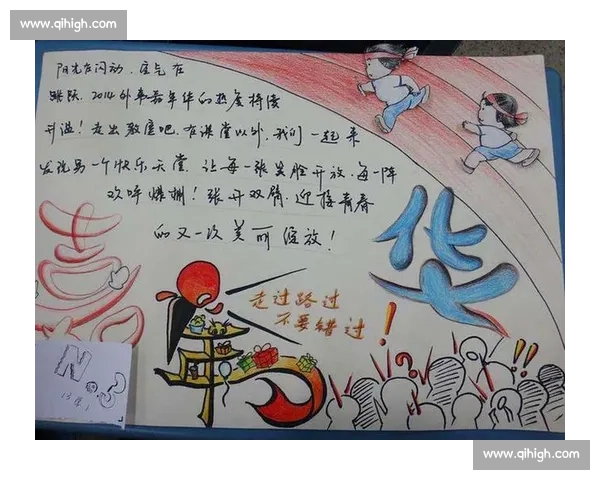 www.qihigh.com
阳光在闪动,空气在
跳跃,2014外事嘉年华的热度持续
升温!走出教室吧,在课堂以外,我们一起来
发现另一个快乐天堂,让每一张笑脸开放,每一阵
欢呼爆棚!张开双臂,迎接青春
的又一次美丽绽放!
嘉
年
华
走过路过
不要错过!
No.3
? ! !!
www.qihigh.com